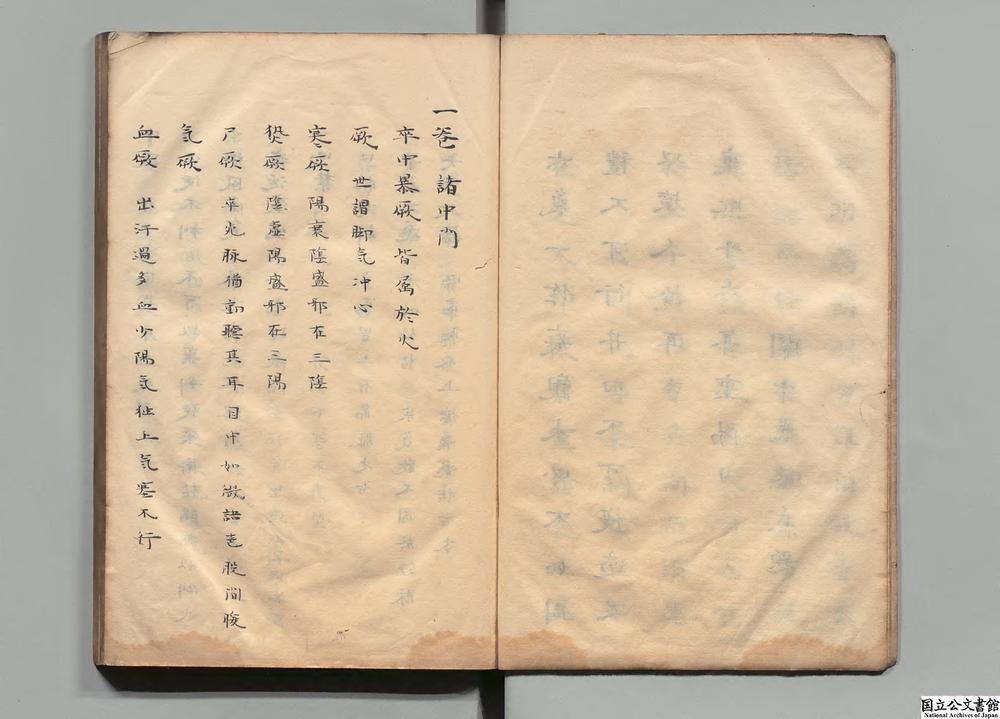 一卷諸中門
卒中暴厥皆屬於火
厥 世謂脚气冲心
寒厥 陽衰陰盛邪在三陰
熱厥 陰虛陽盛邪在三陽
尸厥 卒死脉猶動聽其耳目中如微語声股間暖
气厥
血厥 出汗過多血少陽气独上气塞不行
国立公文書館
National Archives of Japan